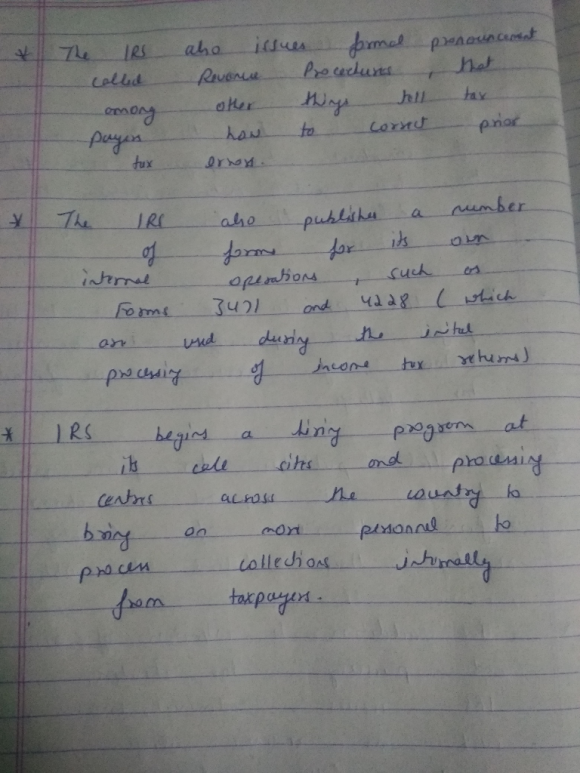 * The IRS also issues formal pronouncement
called Revenue Procedures, that
among other things tell tax
payers how to correct prior
tax errors.
* The IRS also publishes a number
of forms for its own
internal operations, such as
Forms 3471 and 4228 (which
are used during the inital
processing of income tax returns)
* IRS begins a hiring program at
its call sites and processing
centres across the country to
bring on more personnel to
process collections internally
from taxpayers.